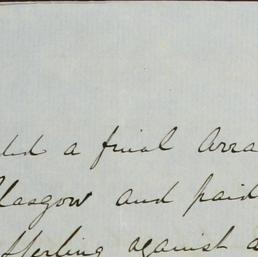 a final Arra
lasgow and paid
sterling against a